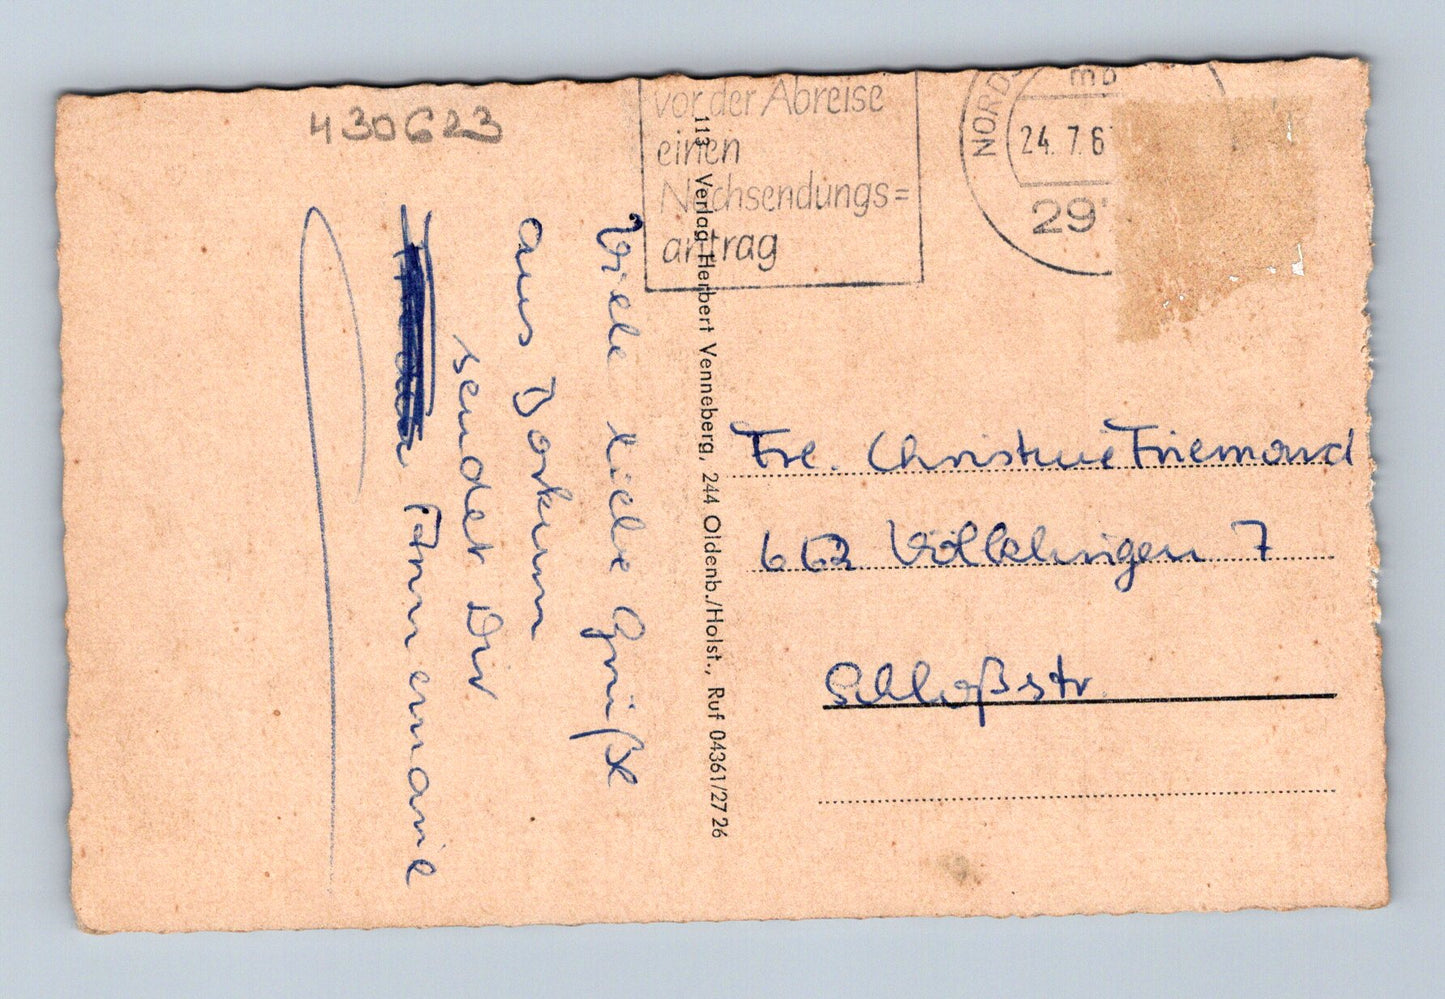 430623
vor der Abreise
einen
Nachsendungs=
antrag
NORD
24. 7. 6
29
Viele liebe Grüße
aus Borkum
sendet Dir
113 Verlag Herbert Venneberg, 244 Oldenb./Holst., Ruf 04361/27 26
Frl. Christine Friemond
662 Völklingen 7
Schloßstr.